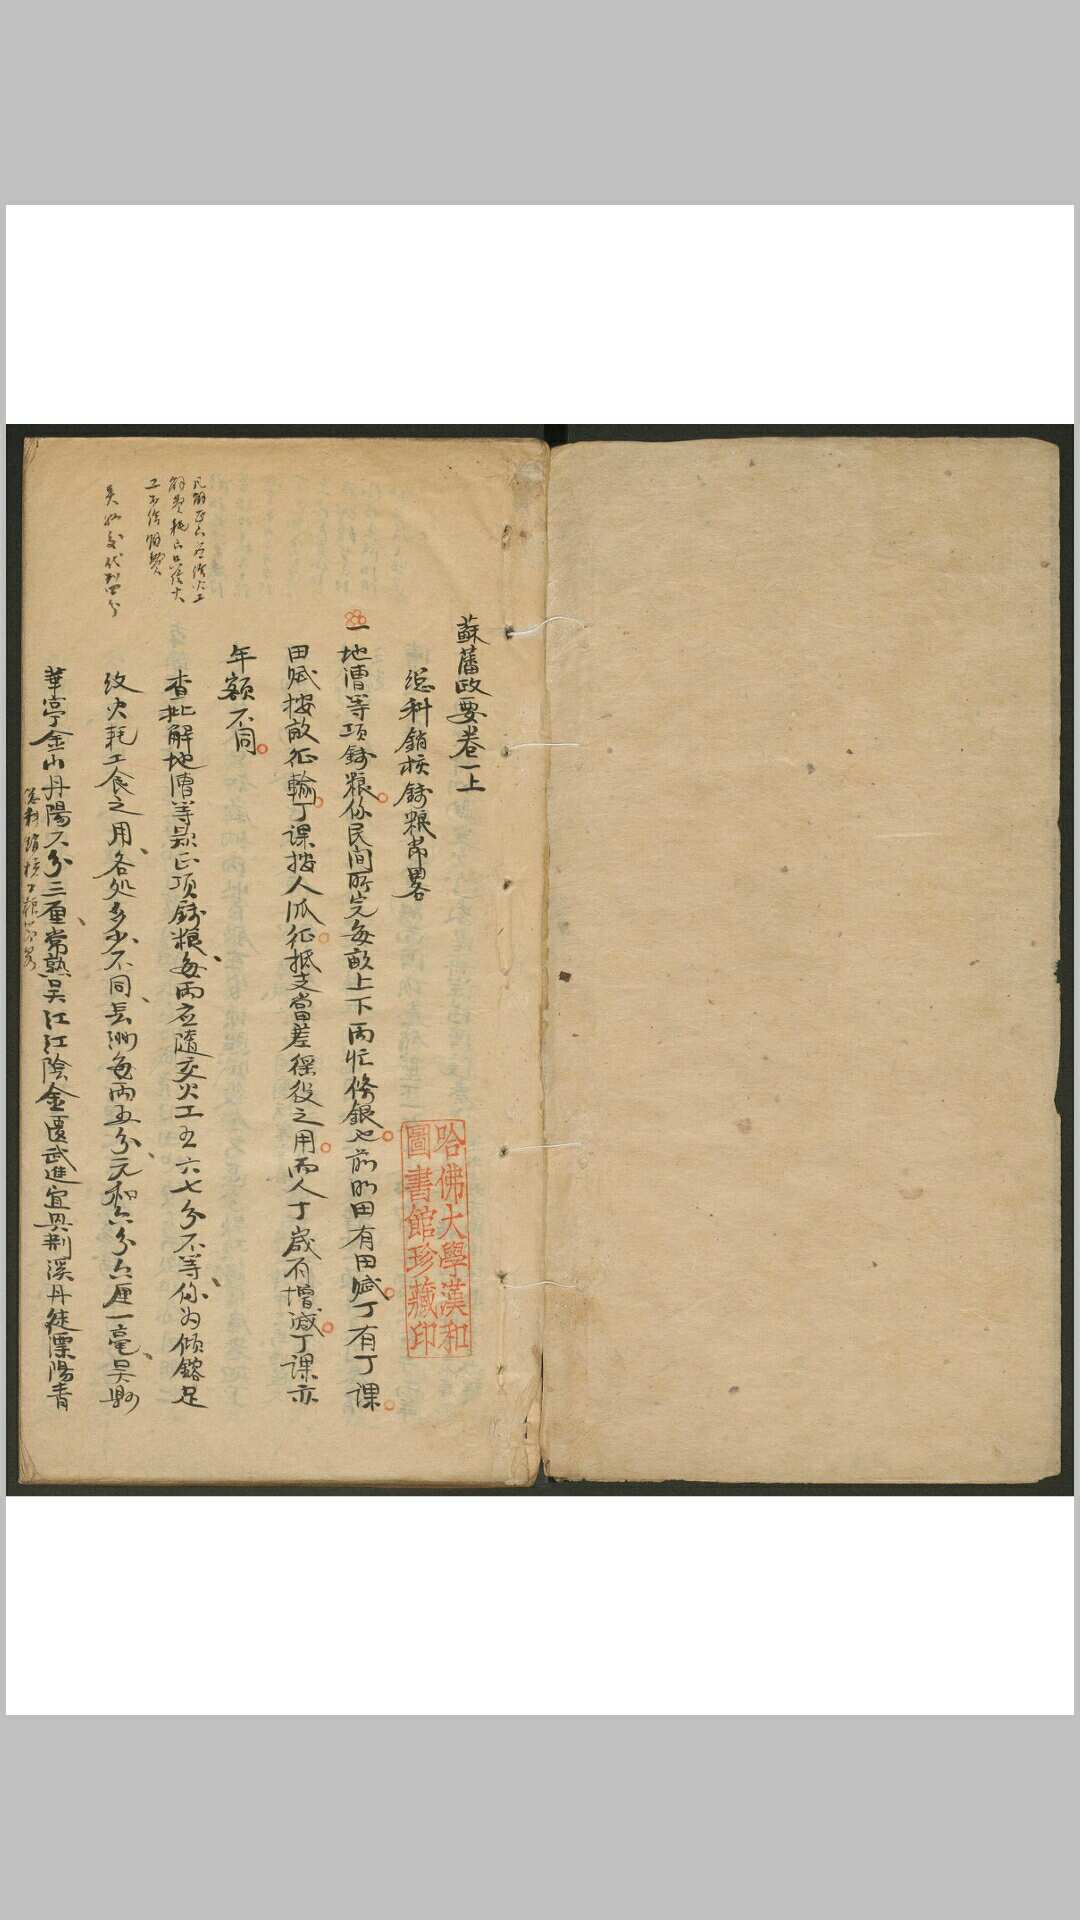 蘇藩政要卷一上
總科銷核錢粮節畧
一地漕等項錢粮係民間所完每畝上下两忙條銀也前明田有田賦丁有丁課
田賦按畝征輸丁課按人瓜征抵支當差徭役之用而人丁歲有增減丁課亦
年額不同
查批解地漕等款正項錢粮每两应隨交火工五六七分不等係为傾鎔足
纹火耗工食之用各処多少不同長洲每两五分元和六分六厘一毫吳縣
華亭金山丹陽六分三厘常熟吳江江陰金匱武進宜興荆溪丹徒溧陽青
工不給
吳 交代 四分
總科銷核
哈佛大學漢和
圖書館珍藏印